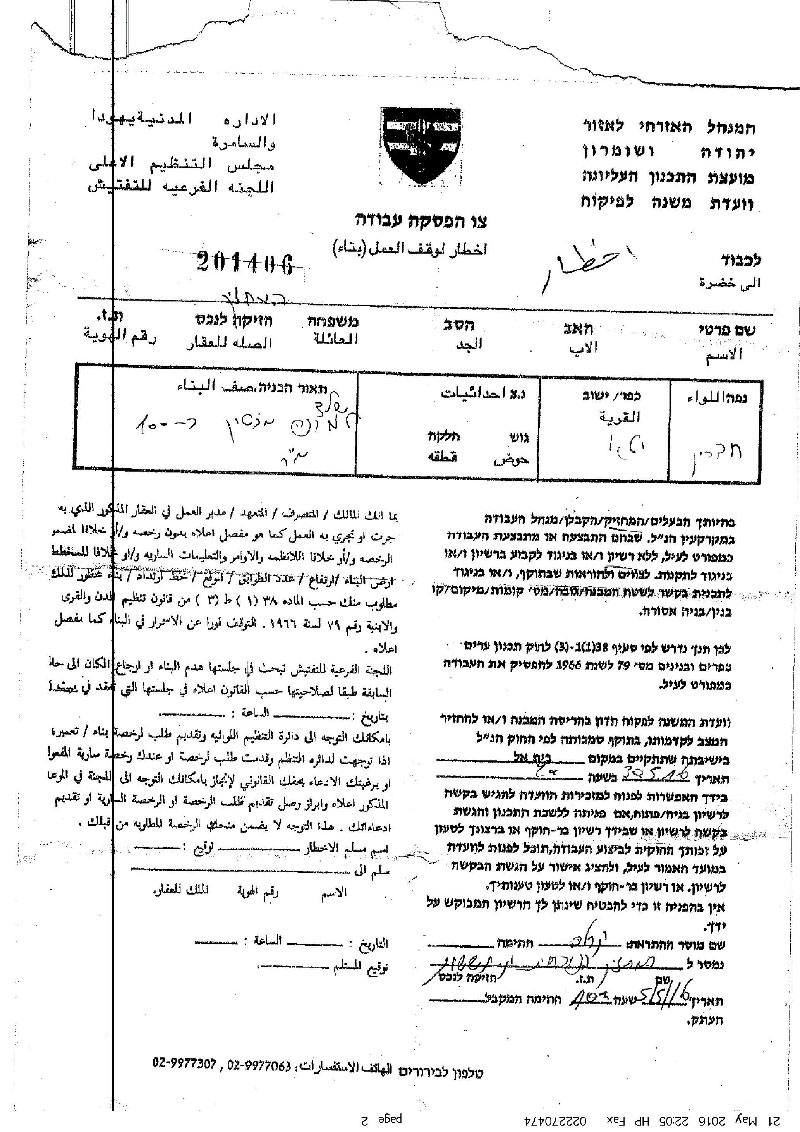 המנהל האזרחי לאזור
יהודה ושומרון
מועצת התכנון העליונה
וועדת משנה לפיקוח
الاداره المدنية يهودا
والسامرة
مجلس التنظيم الاعلى
اللجنه الفرعيه للتفتيش
צו הפסקת עבודה
اخطار لوقف العمل (بناء)
201406
לכבוד
الى حضرة
اخطار
שם פרטי האב הסב משפחה חזיקה לנכס ת.ז.
الاسم الاب الجد العائلة الصله للعقار رقم الهوية
נפה اللواء
חברון
כפר/ ישוב
القرية
נ.צ احداثيات
גוש חלקה
حوض قطعه
תאור הבניה. صنف البناء
כ-100
מ"ר
בהיותך הבעלים/המחזיק/הקבלן/מנהל העבודה
במקרקעין הנ"ל. שבהם התבצעה או מתבצעת העבודה
כמפורט לעיל, ללא רשיון ו/או בניגוד לקבוע ברשיון ו/או
בניגוד לתקנות. לצווים ולהוראות שבתוקף, ו/או בניגוד
לתכנית בקשר לשטח המבנה/גובה/מס' קומות/מיקום/קו
בנין/בניה אסורה.
לכן הנך נדרש לפי סעיף 38(1)-(3) לחוק תכנון ערים
כפרים ובנינים מס' 79 לשנת 1966 להפסיק את העבודה
כמפורט לעיל.
וועדת המשנה לפקוח תדון בהריסת המבנה ו/או להחזיר
המצב לקדמותו, בתוקף סמכותה לפי החוק הנ"ל
בישיבתה שתתקיים במקום בית אל
תאריך בשעה
בידך האפשרות לפנות למזכירות הוועדה להגיש בקשה
לרשיון בניה/פתוח, אם פניתה ללשכת התכנון והגשת
בקשה לרשיון או שבידך רשיון בר-תוקף או ברצונך לטעון
על זכותך החוקית לביצוע העבודה, תוכל לפנות לוועדה
במועד האמור לעיל, ולהציג אישור על הגשת הבקשה
לרשיון. או רשיון בר-תוקף ו/או לטעון טענותיך.
אין בהפניה זו כדי להבטיח שינתן לך הרשיון המבוקש על
ידך.
שם מוסר ההתראה: חתימה
נמסר ל
שם ת.ז. חזיקה לנכס
תאריך 5/5/16 שעה חתימה המקבל
העתק.
بما انك المالك / المتصرف / المتعهد / مدير العمل في العقار المذكور الذي به
جرت او تجري به العمل كما هو مفصل اعلاه بدون رخصه و/أو خلافا لمضمون
الرخصه و/أو خلافا للانظمه والاوامر والتعليمات الساريه و/أو خلافا للمخطط
ارض البناء /ارتفاع / عدد الطوابق / الموقع / خط ارتداد / بناء محظور لذلك
مطلوب منك حسب الماده ٣٨ (١) ط (٣) من قانون تنظيم المدن والقرى
والابنية رقم ٧٩ لسنة ١٩٦٦. التوقف فورا عن الاستمرار في البناء كما مفصل
اعلاه .
اللجنة الفرعية للتفتيش تبحث في جلستها هدم البناء او ارجاع المكان الى حالته
السابقة طبقا لصلاحيتها حسب القانون اعلاه في جلستها التي تعقد في
بتاريخ : الساعة :
بامكانك التوجه الى دائرة التنظيم اللوائيه وتقديم طلب لرخصة بناء / تعميره
اذا توجهت لدائره التنظيم وقدمت طلب لرخصة او عندك رخصة سارية المفعول
او برغبتك الادعاء بحقك القانوني لإنجاز بامكانك التوجه الى اللجنة في الموعد
المذكور اعلاه وابراز وصل تقديم طلب الرخصة او الرخصة السارية او تقديم
ادعاءاتك . هذا التوجه لا يضمن منحك الرخصة المطلوبه من قبلك .
اسم مسلم الاخطار توقيع :
سلم الى
الاسم رقم الهوية المالك للعقار
التاريخ : الساعة :
توقيع المستلم
טלפון לבירורים الهاتف الاستفسارات: 02-9977063 , 02-9977307
21 May 2016 22:05 HP Fax 022270474 page 2